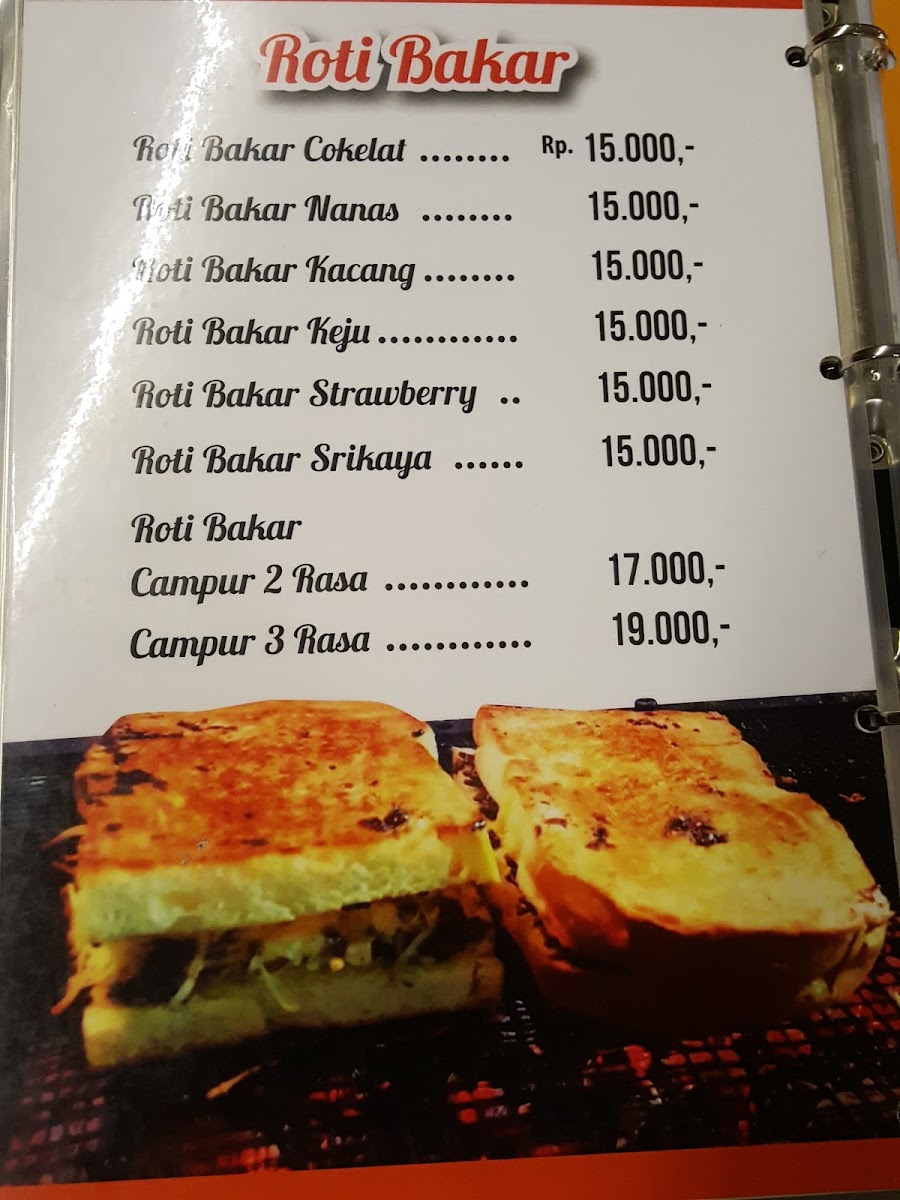 Roti Bakar
Roti Bakar Cokelat ........ Rp. 15.000,-
Roti Bakar Nanas ........ 15.000,-
Roti Bakar Kacang ........ 15.000,-
Roti Bakar Keju ............ 15.000,-
Roti Bakar Strawberry .. 15.000,-
Roti Bakar Srikaya ...... 15.000,-
Roti Bakar
Campur 2 Rasa ............ 17.000,-
Campur 3 Rasa ............ 19.000,-